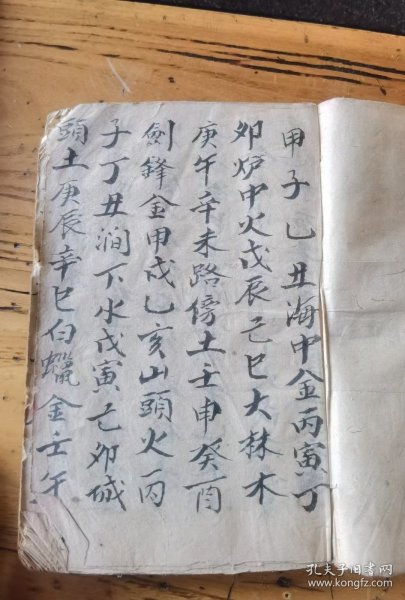 甲子乙丑海中金丙寅丁
卯炉中火戊辰己巳大林木
庚午辛未路傍土壬申癸酉
劍鋒金甲戌乙亥山頭火丙
子丁丑澗下水戊寅己卯城
頭土庚辰辛巳白蠟金壬午
孔夫子旧书网
www.kongfz.com